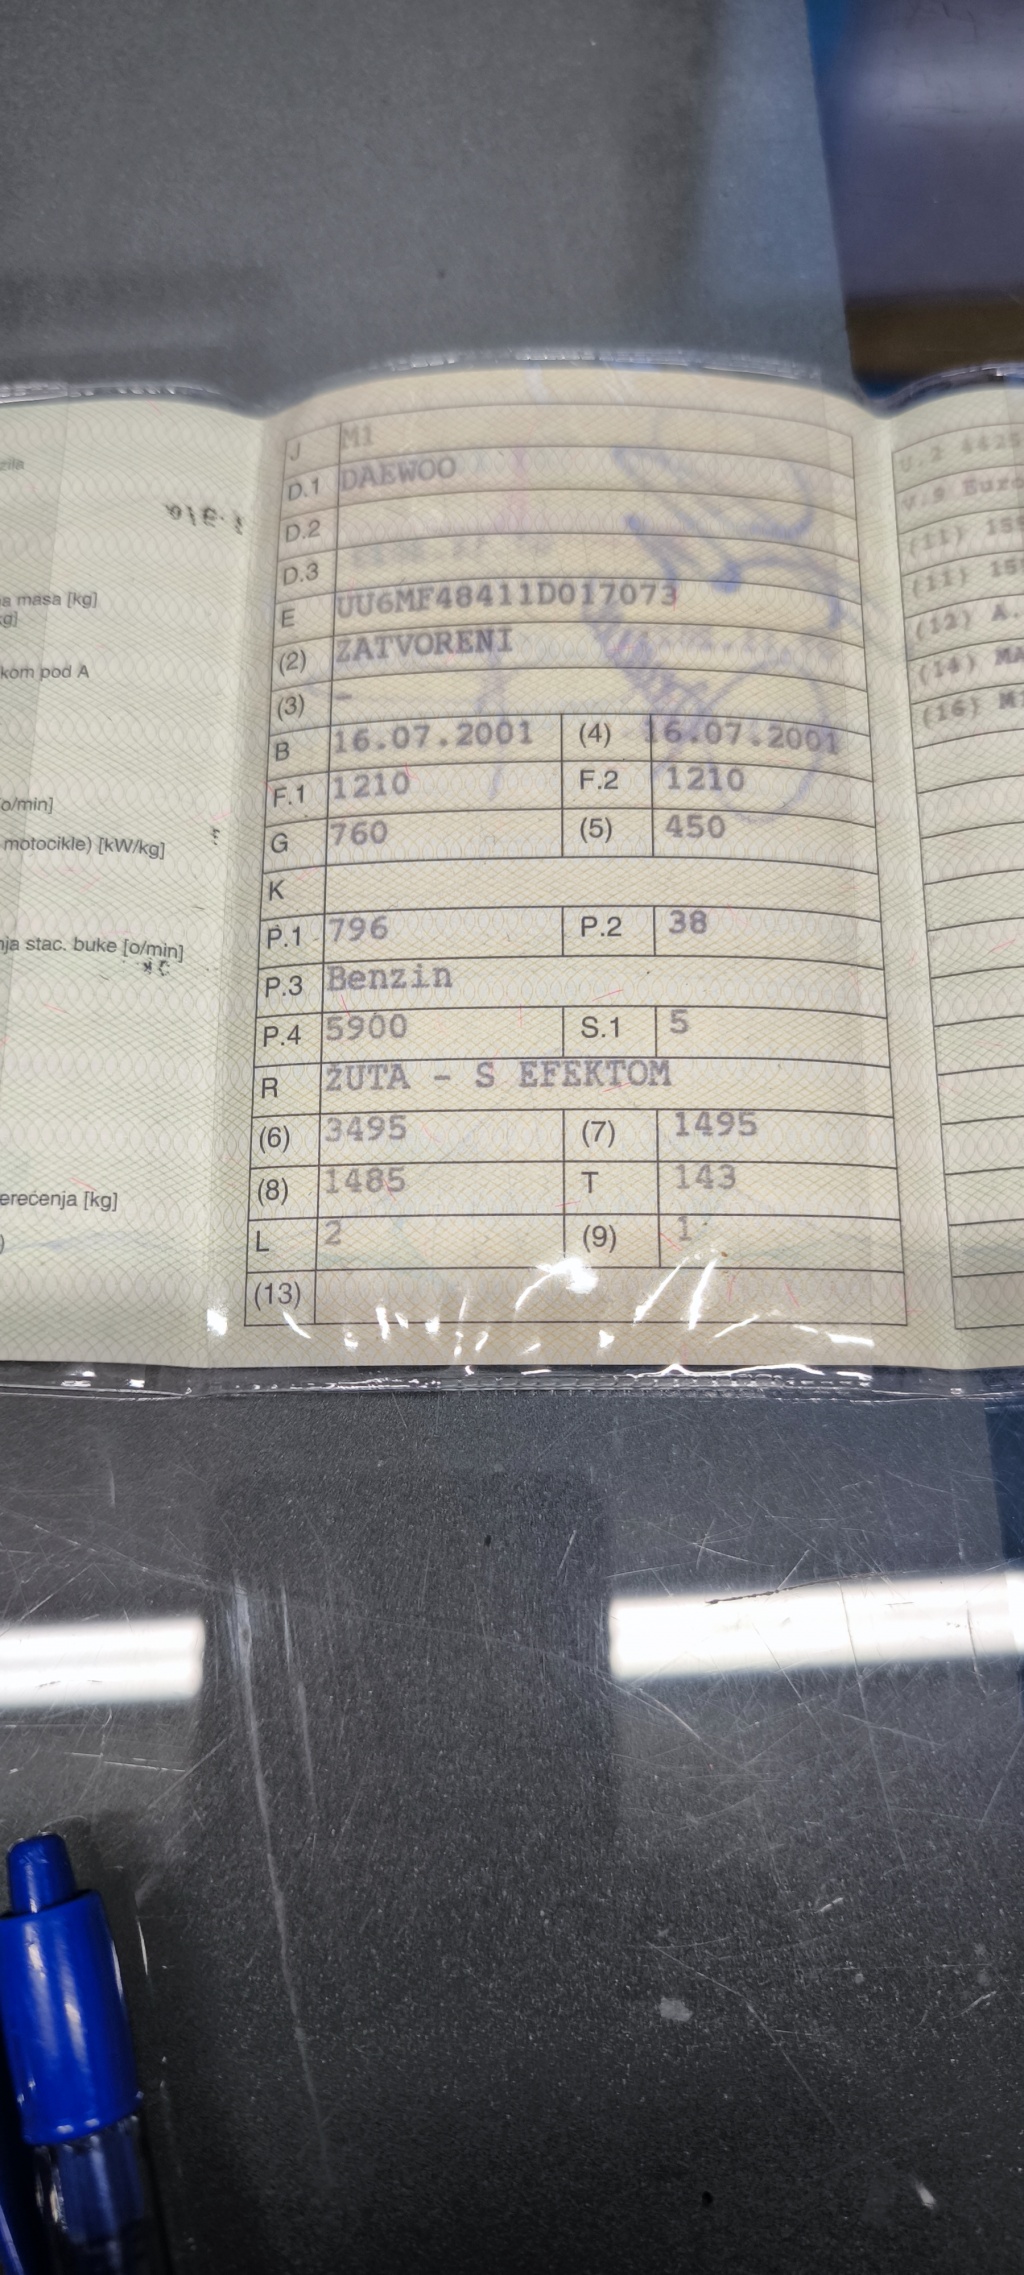 zila
a masa [kg]
kom pod A
o/min]
motocikle) [kW/kg]
ja stac. buke [o/min]
erećenja [kg]
J M1
D.1 DAEWOO
D.2
D.3
E UU6MF48411D017073
(2) ZATVORENI
(3) –
B 16.07.2001 (4) 16.07.2001
F.1 1210 F.2 1210
G 760 (5) 450
K
P.1 796 P.2 38
P.3 Benzin
P.4 5900 S.1 5
R ŽUTA - S EFEKTOM
(6) 3495 (7) 1495
(8) 1485 T 143
L 2 (9) 1
(13)
U.2 4425
V.9 Euro
(11) 155
(11) 155
(12) A.
(14) MA
(16) M1